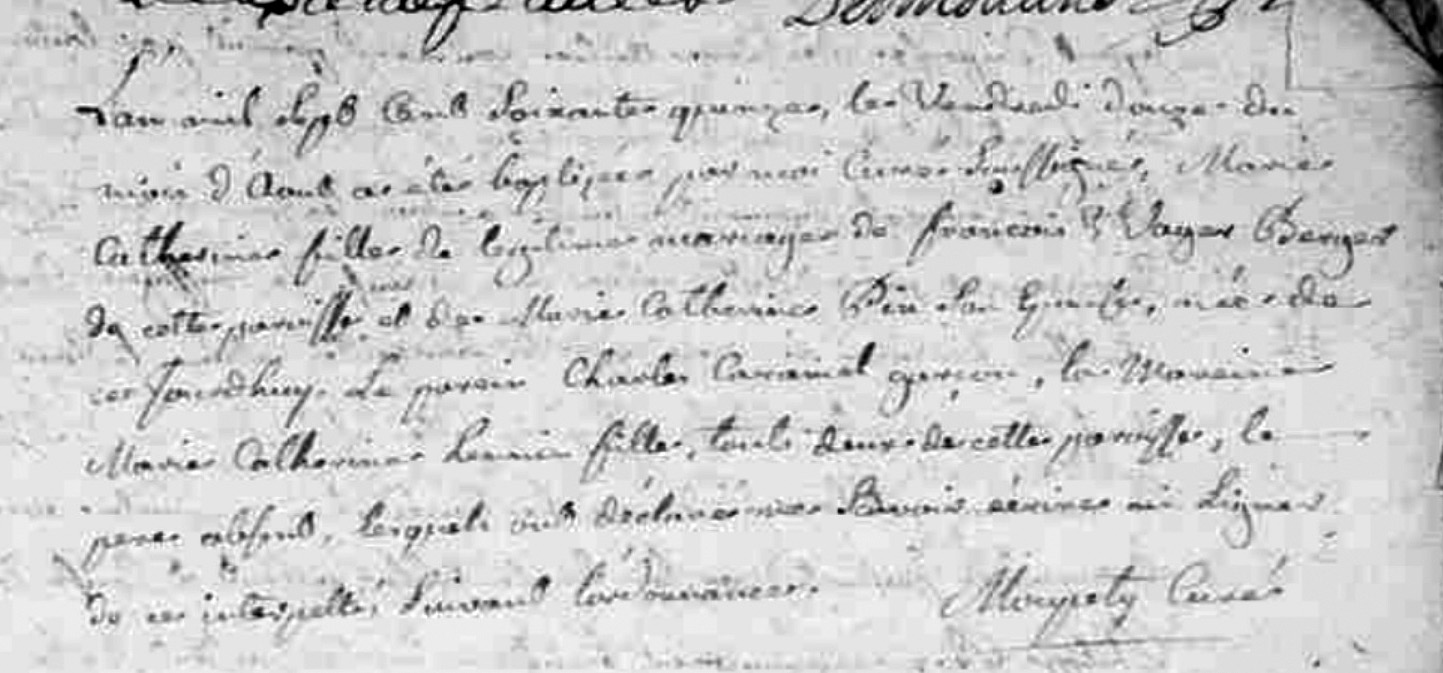 Desmoulins
L'an mil sept Cent Soixante quinze, le Vendredi douze du
mois d'Aout a été baptisée par moi Curé Soussigné, Marie
Catherine fille de legitime mariage de françois Berger
de cette paroisse et de Marie Catherine son Epouse, née de
ce Jourdhuy. Le parein Charles garçon, la Mareine
Marie Catherine fille, touts deux de cette paroisse, le
pere absent, lesquels ont déclaré ne Savoir écrire ni Signer
de ce interpellés Suivant l'ordonnance. Curé